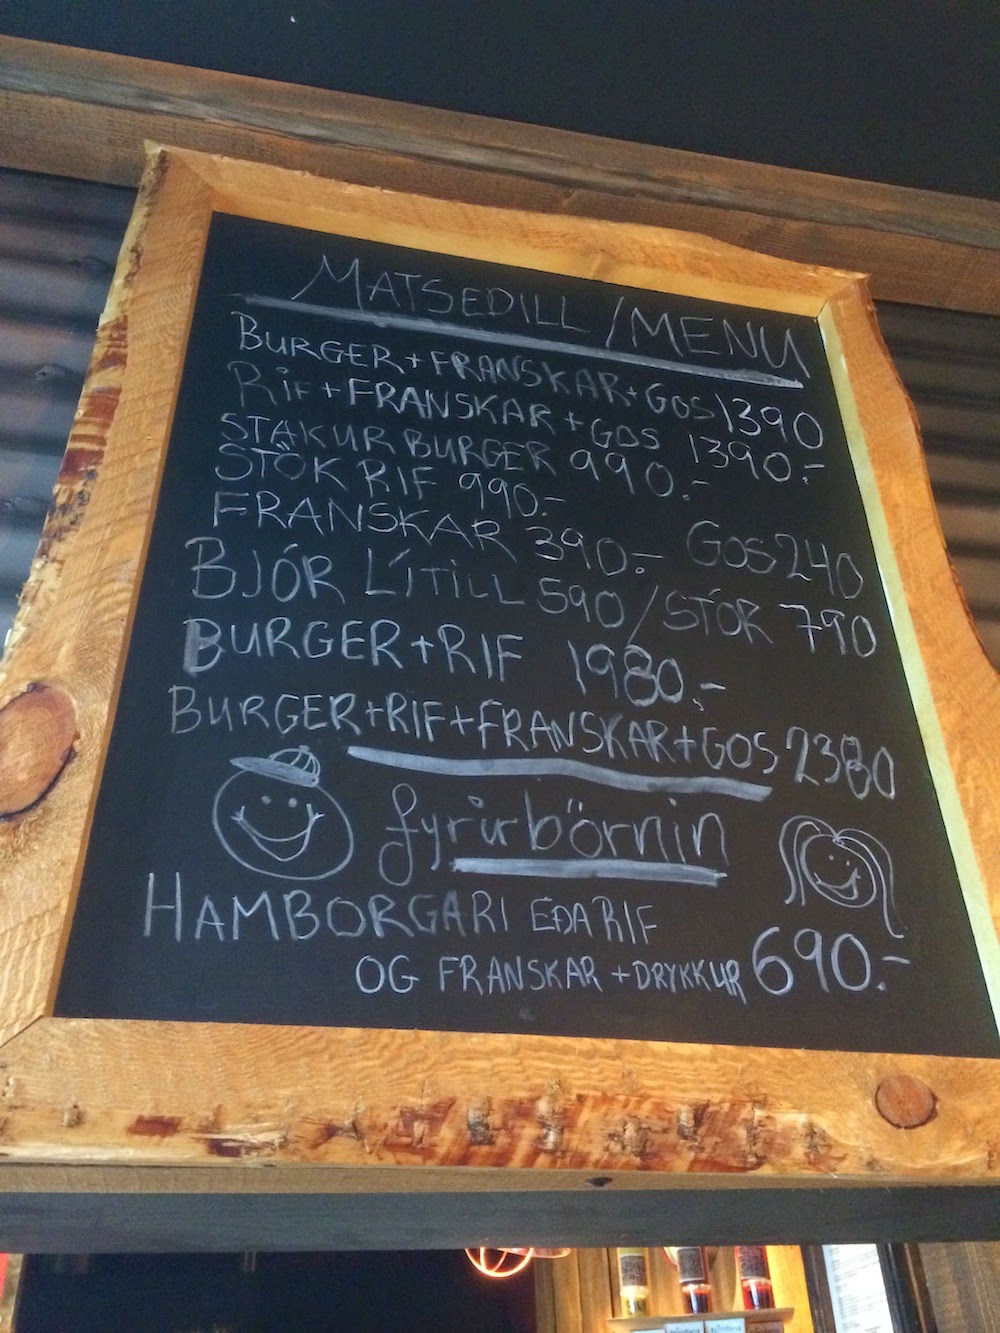 MATSEDILL / MENU
BURGER + FRANSKAR + GOS 1390
RIF + FRANSKAR + GOS 1390.-
STAKUR BURGER 990.-
STÖK RIF 990.-
FRANSKAR 390.- GOS 240
BJÓR LÍTILL 590 / STÓR 790
BURGER + RIF 1980.-
BURGER + RIF + FRANSKAR + GOS 2380
fyrir börnin
HAMBORGARI EÐA RIF
OG FRANSKAR + DRYKKUR 690.-